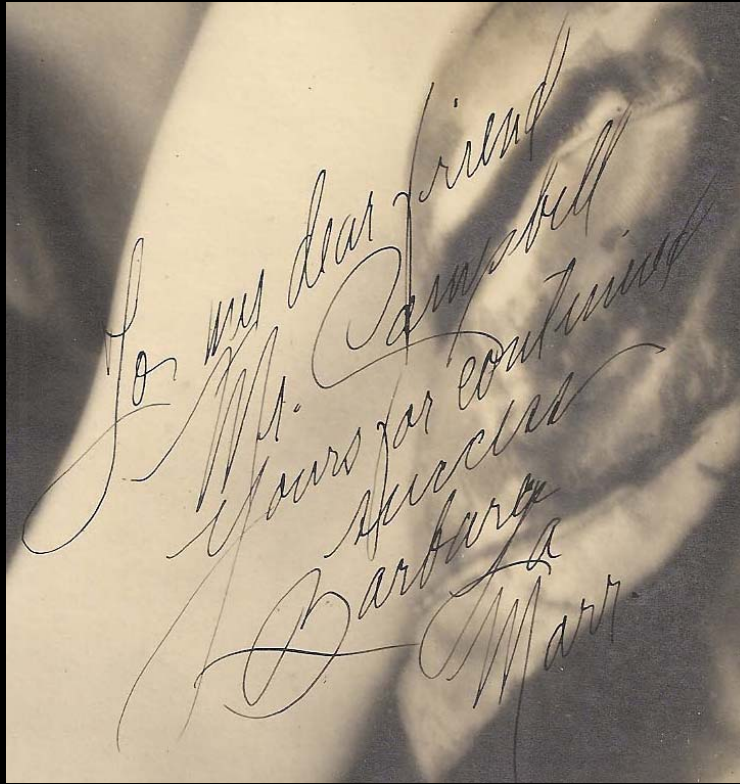 For my dear friend
Mr. Campbell
Yours for continued
success
Barbara
La
Marr.